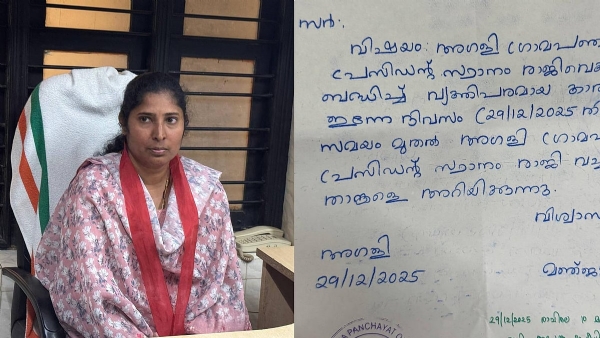 സർ:
വിഷയം: അഗളി ഗ്രാമപഞ്ചാ
പ്രസിഡന്റ് സ്ഥാനം രാജിവെക
ബന്ധിച്ച് വ്യക്തിപരമായ കാര
ഇന്നേ ദിവസം (29/12/2025
സമയം മുതൽ അഗളി ഗ്രാമപ
പ്രസിഡന്റ് സ്ഥാനം രാജി വച്ച
താങ്കളെ അറിയിക്കുന്നു.
വിശ്വാസ
അഗളി
29/12/2025
മഞ്ജു
PANCHAYAT
29/12/2025 രാവിലെ 10 മ